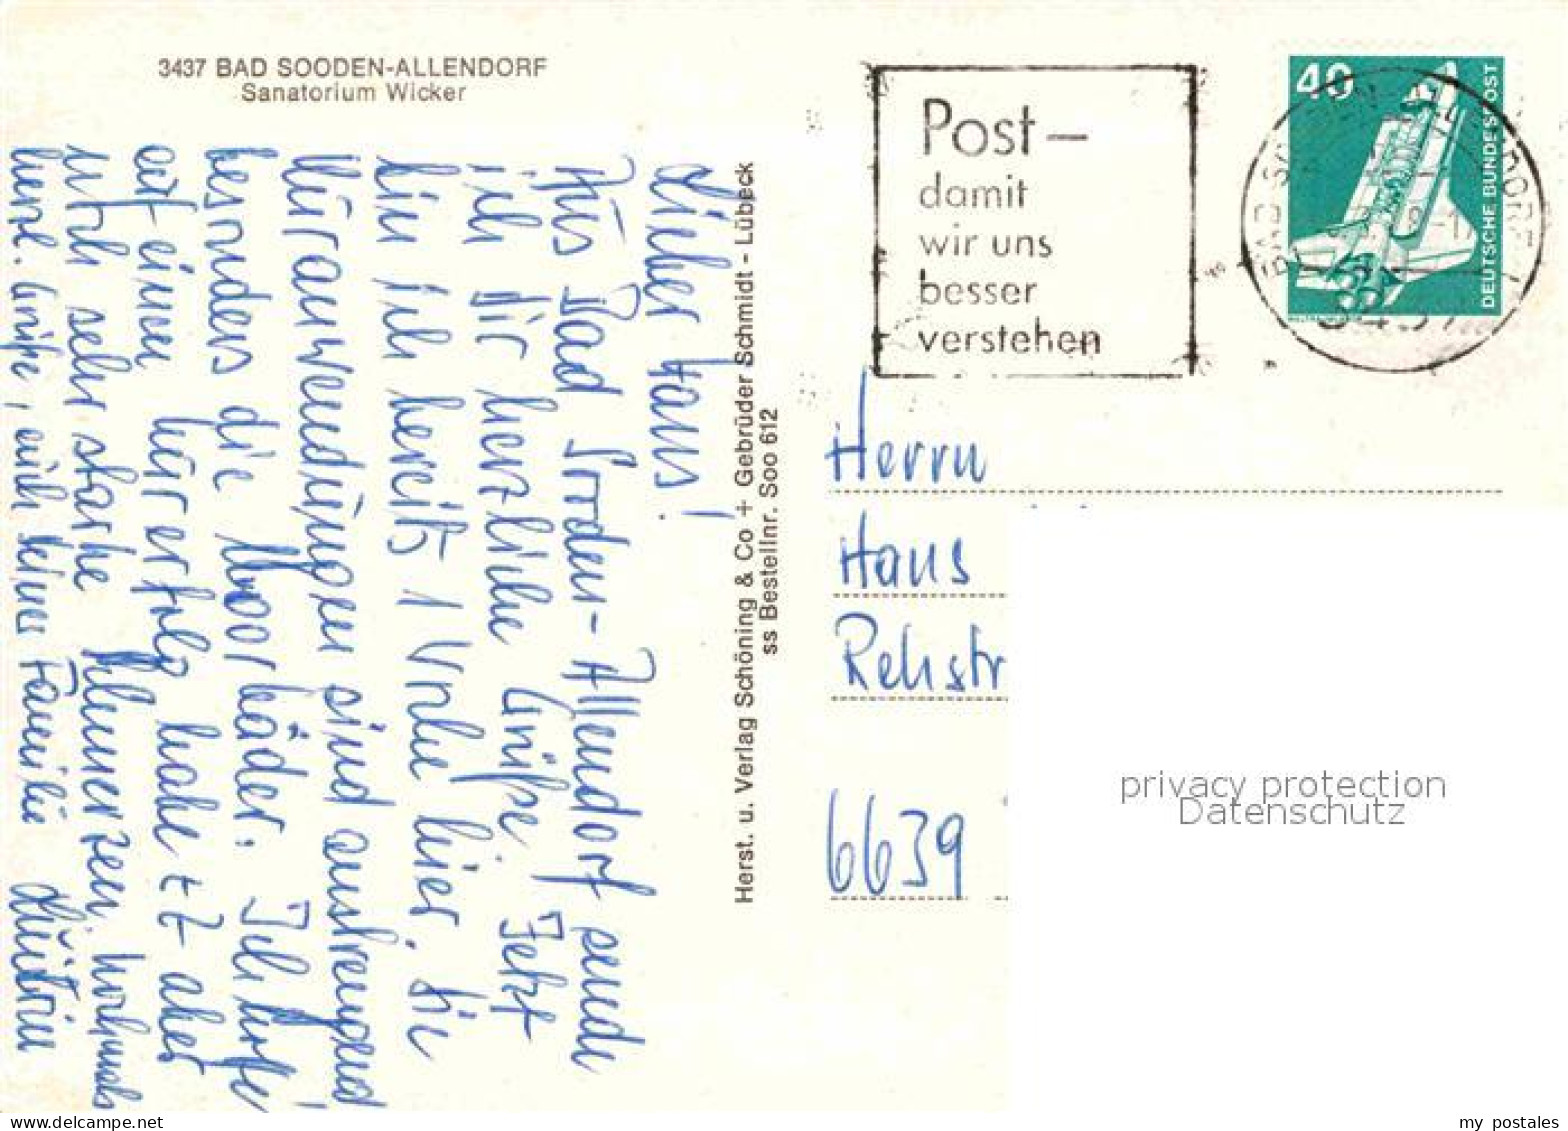 3437 BAD SOODEN-ALLENDORF
Sanatorium Wicker
Lieber Hans!
Aus Bad Sooden-Allendorf sende
ich dir herzliche Grüße. Jetzt
bin ich bereits 1 Woche hier. Die
Kuranwendungen sind anstrengend
besonders die Moorbäder. Ich hoffe!
auf einen Kurerfolg habe z Z aber
noch sehr starke Schmerzen. Nochmals
herzl. Grüße, auch deiner Familie
Herst. u. Verlag Schöning & Co + Gebrüder Schmidt - Lübeck
ss Bestellnr. Soo 612
Post –
damit
wir uns
besser
verstehen
40
DEUTSCHE BUNDESPOST
BAD SOODEN-ALLENDORF
3437
Herrn
Hans
Rehstr
6639
privacy protection
Datenschutz
www.delcampe.net
my_postales